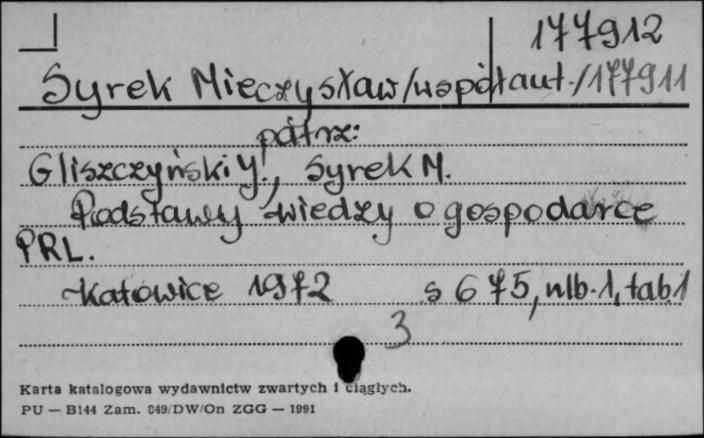 177912
Syrek Mieczysław/współaut./177911
patrz:
Gliszczyński Y., Syrek M.
Podstawy wiedzy o gospodarce
PRL.
Katowice 1972 s 675, nlb.1, tab.1
3
Karta katalogowa wydawnictw zwartych i ciągłych.
PU — B144 Zam. 849/DW/On ZGG — 1991